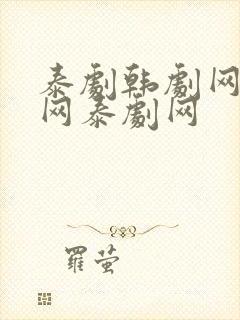 泰劇韩劇网
网泰劇网
羅萤